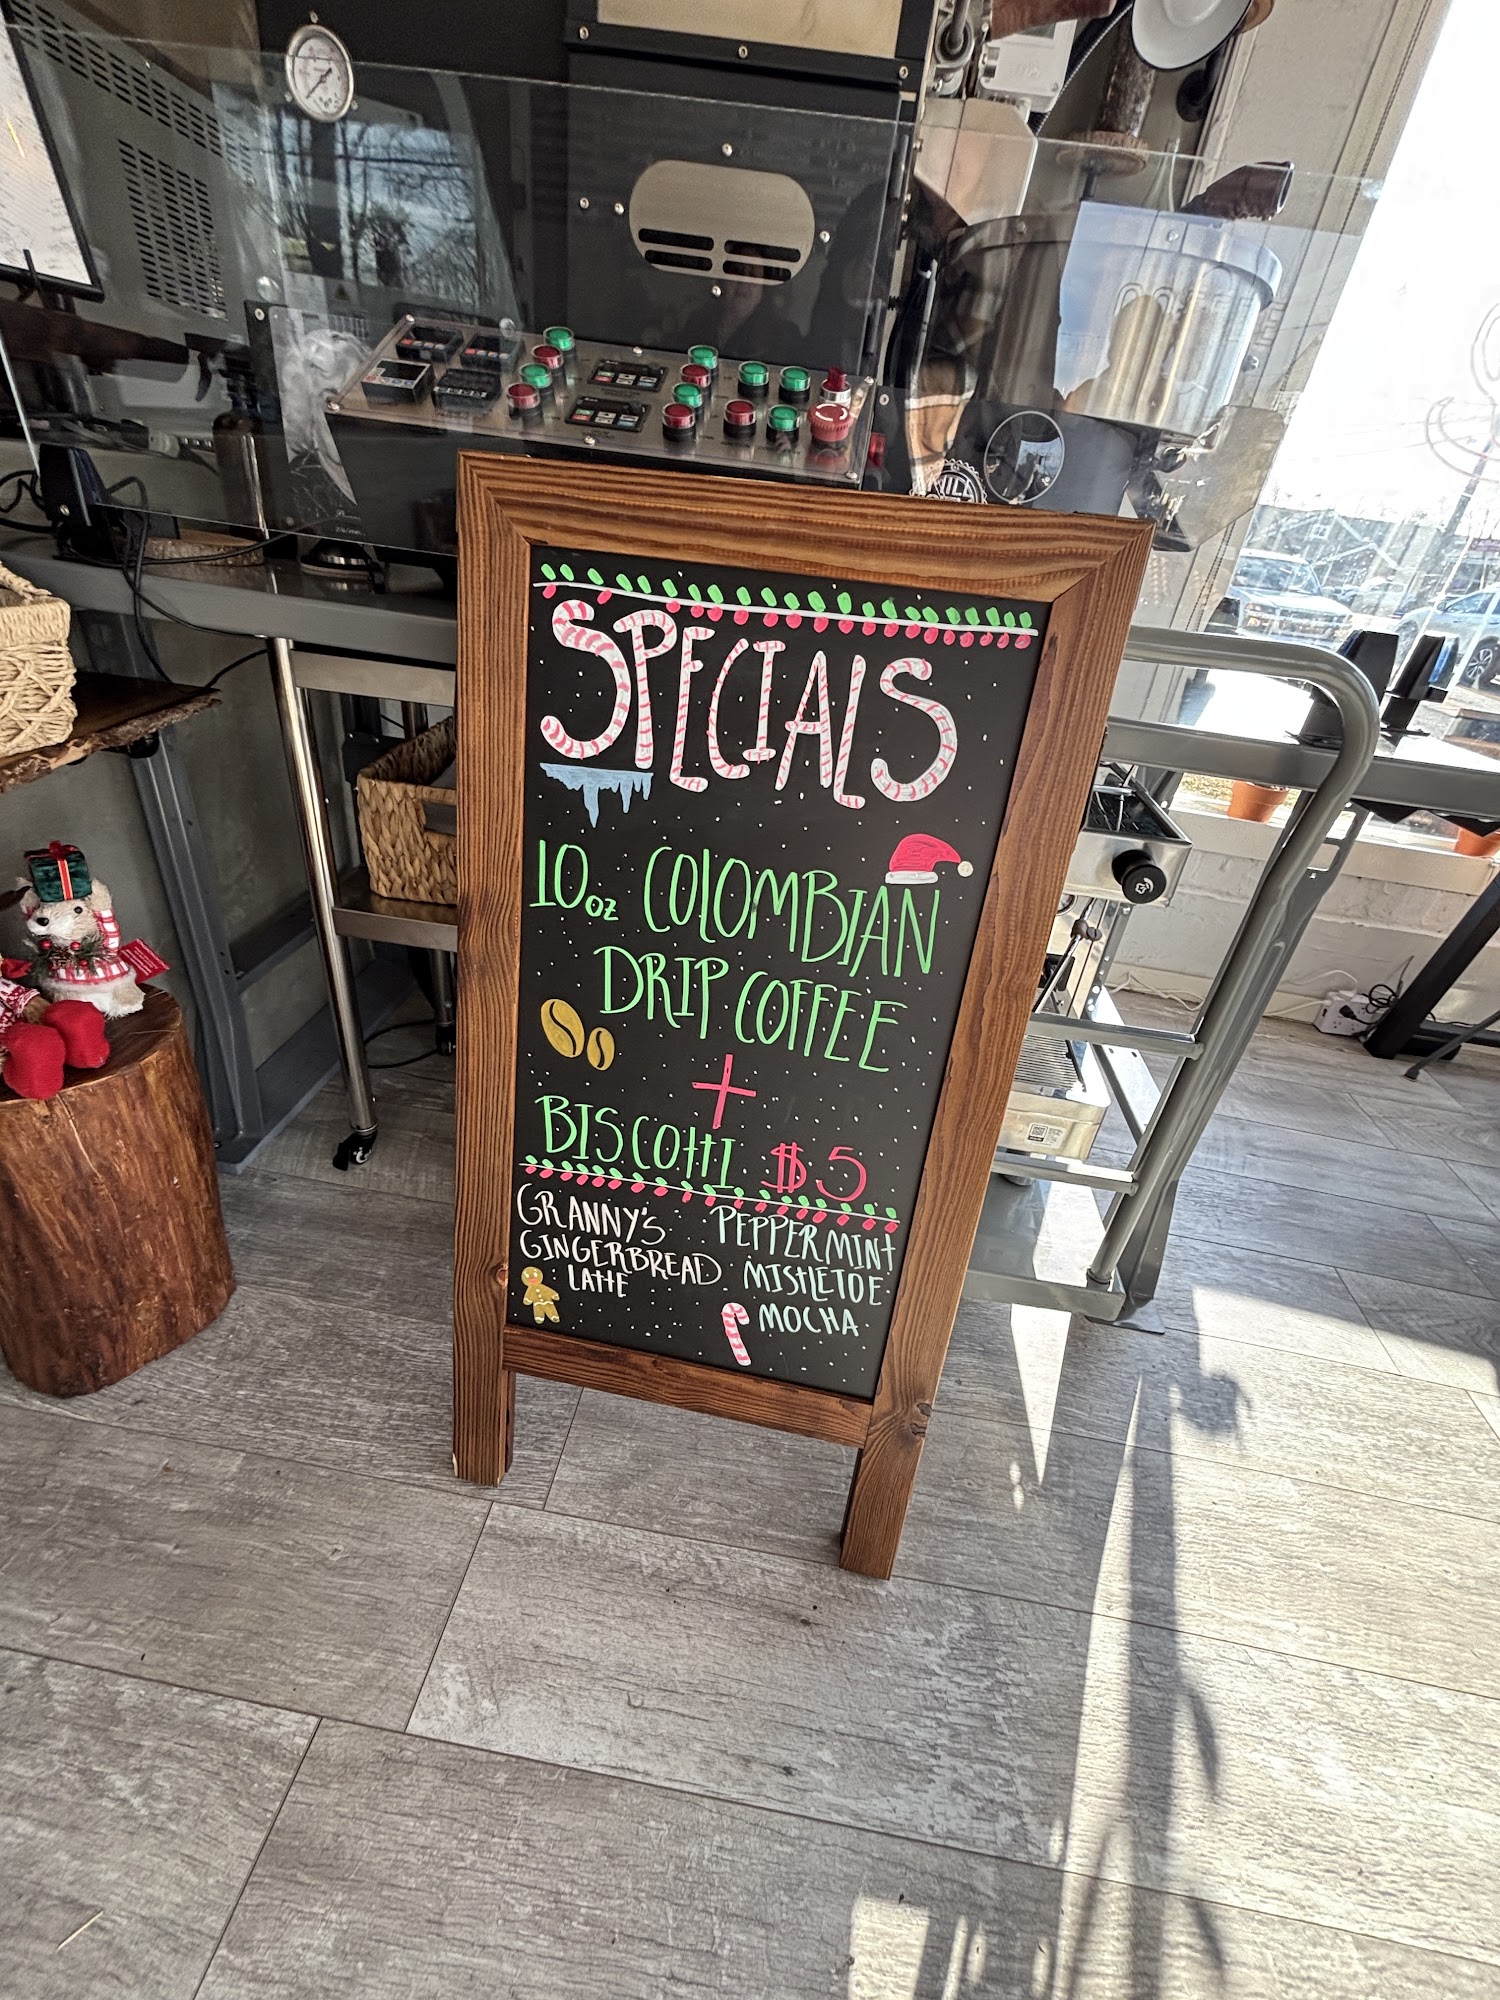 SPECIALS
10oz COLOMBIAN
DRIP COFFEE
+
BISCOTTI $5
GRANNY'S
GINGERBREAD
LATTE
PEPPERMINT
MISTLETOE
MOCHA